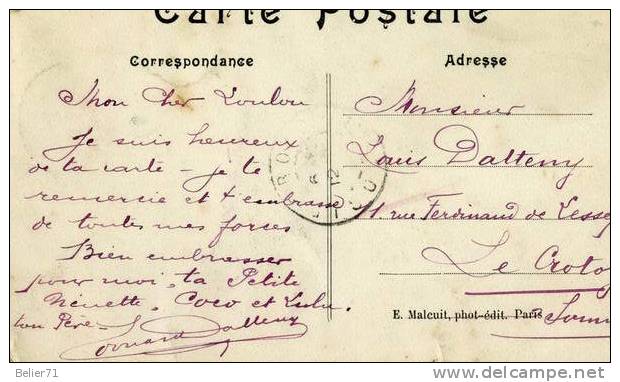 Carte Postale
Correspondance
Adresse
Mon Cher Loulou
Je suis heureux
de ta carte - je te
remercie et t'embrasse
de toutes mes forces
Bien embrasser
pour moi, ta Petite
Nénette, Coco et Lulu.
ton Père
Edouard Dalteny
Monsieur
Louis Dalteny
11, rue Ferdinand de Lesse
Le Crotoy
Somm
E. Malcuit, phot-édit. Paris
12
Belier71
delcampe.net